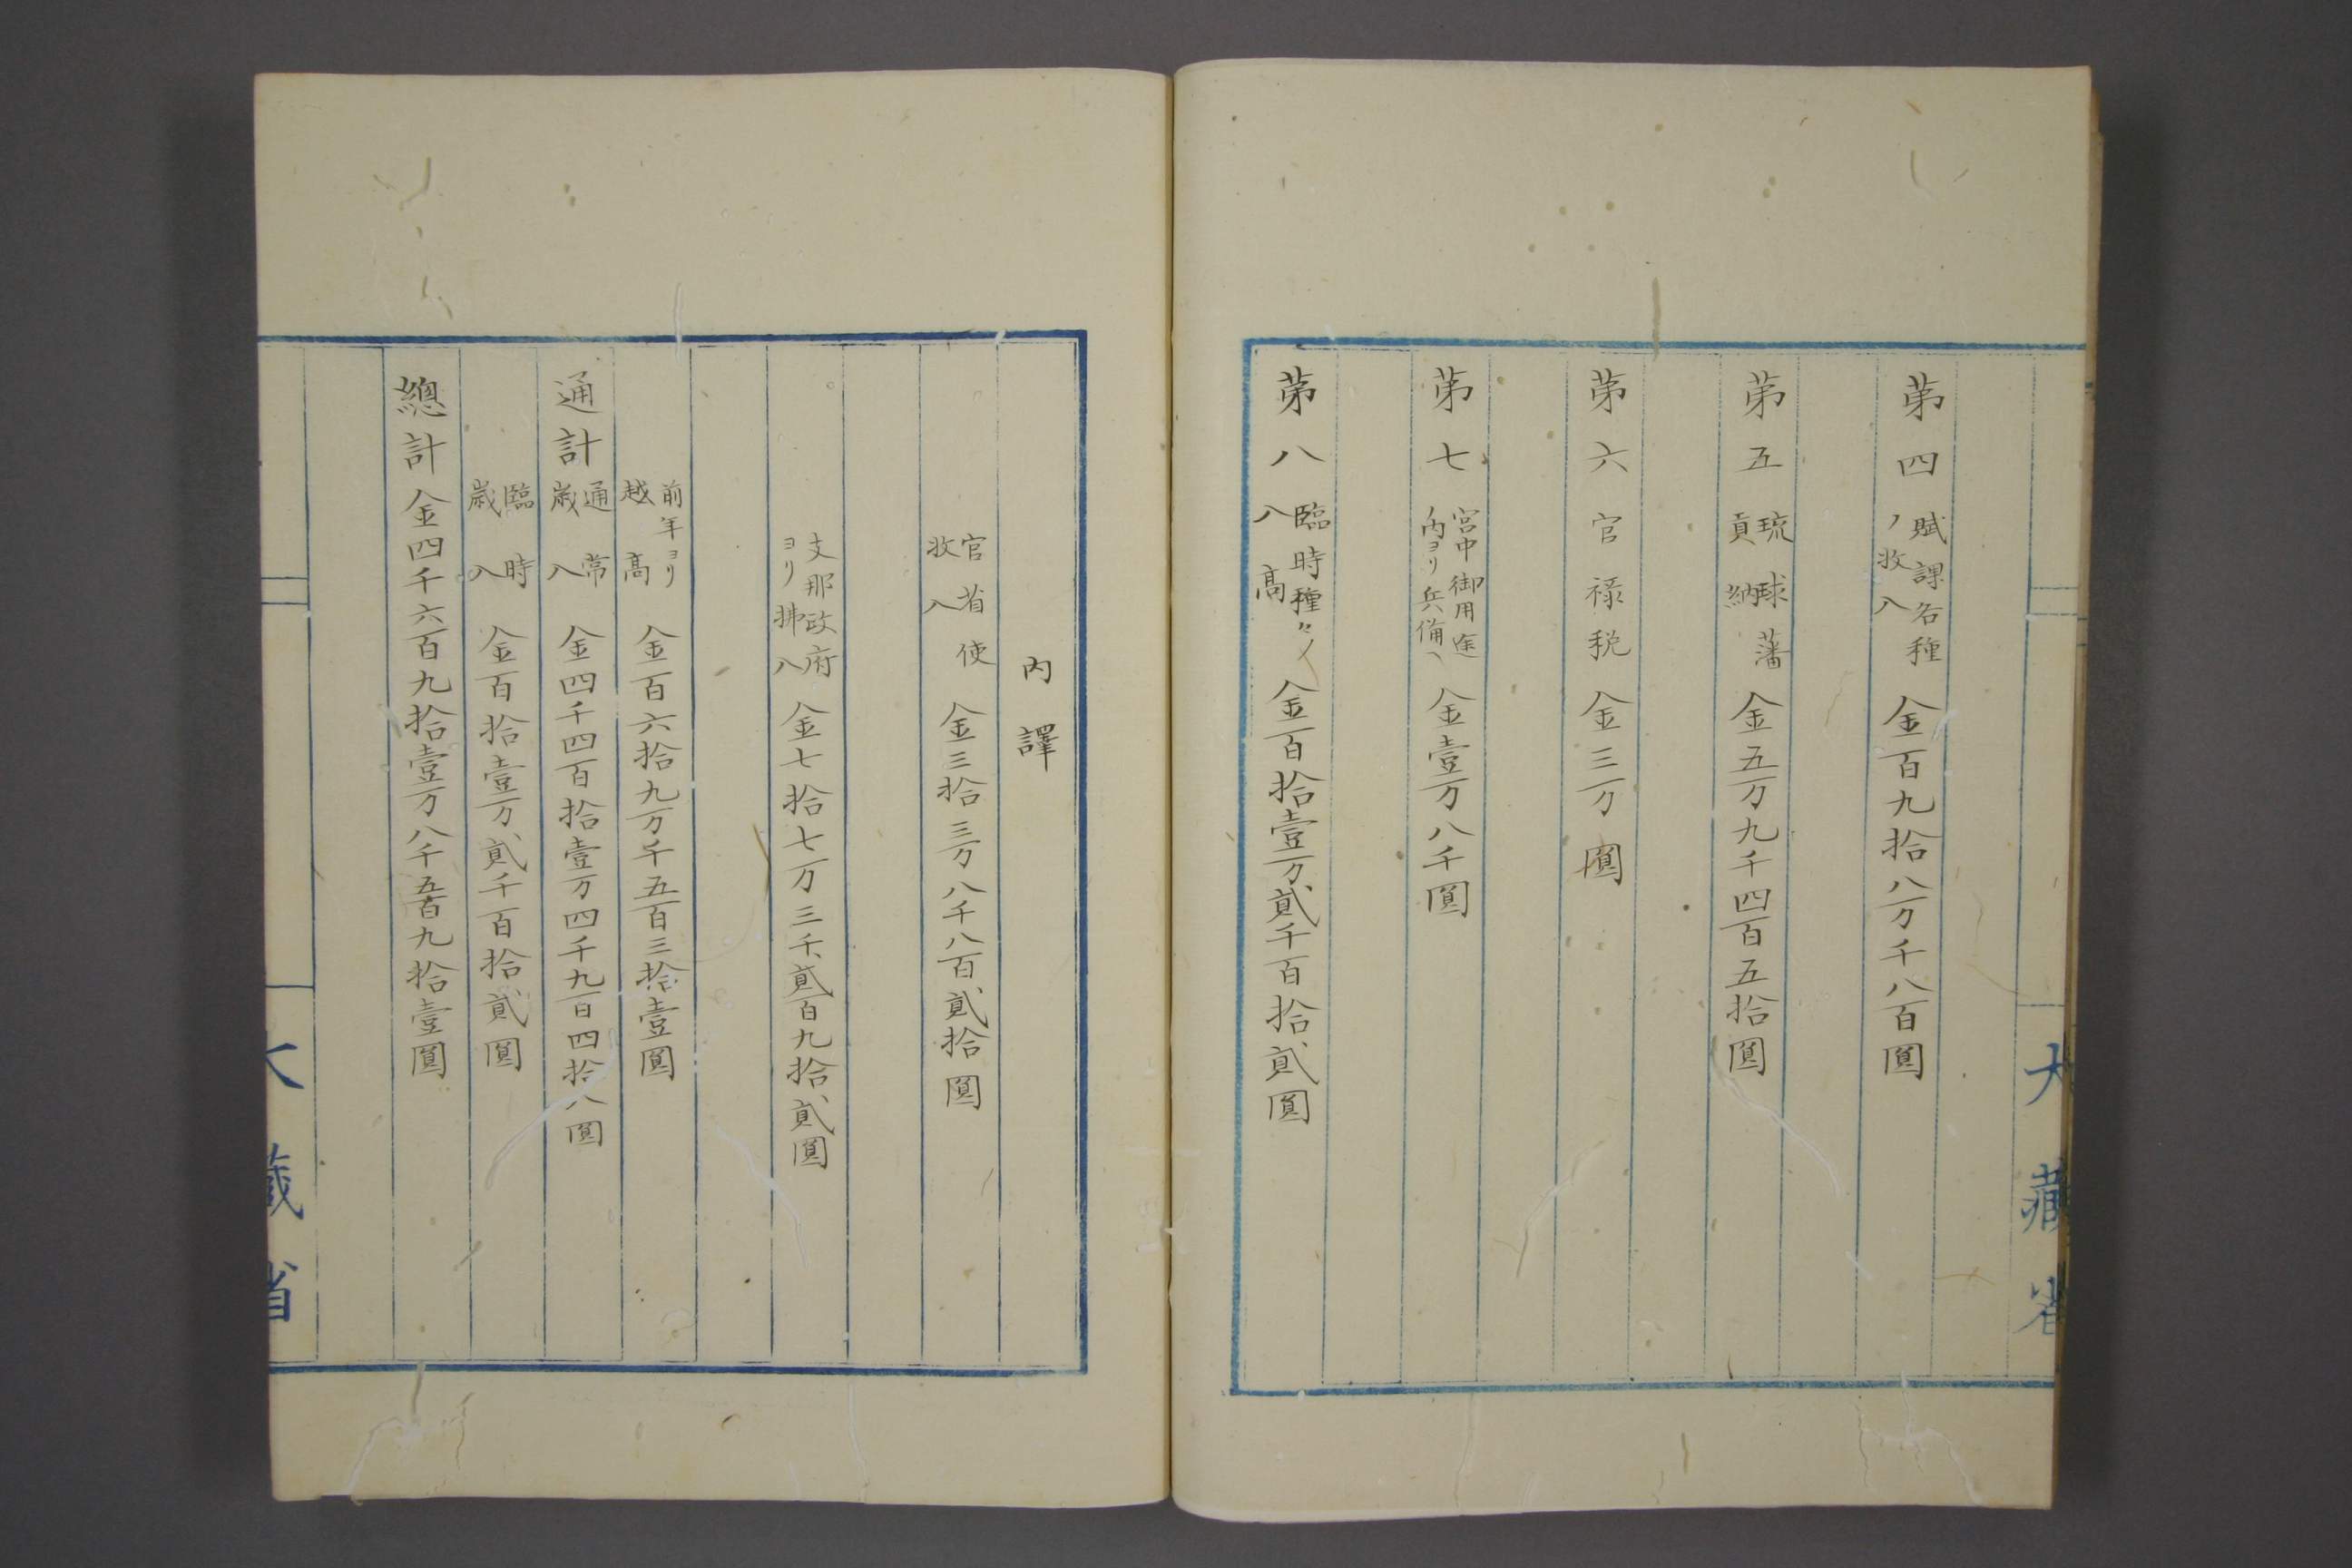 大藏省
第四 賦課各種ノ收入 金百九拾八万千八百圓
第五 琉球藩貢納 金五万九千四百五拾圓
第六 官禄税 金三万圓
第七 宮中御用途ノ內ヨリ兵備ヘ 金壹万八千圓
第八 臨時種々ノ入高 金百拾壹万貳千百拾貳圓
內譯
官省使收入 金三拾三万八千八百貳拾圓
支那政府ヨリ拂入 金七拾七万三千貳百九拾貳圓
前年ヨリ越高 金百六拾九万千五百三拾壹圓
通計 通常歳入 金四千四百拾壹万四千九百四拾八圓
臨時歳入 金百拾壹万貳千百拾貳圓
總計 金四千六百九拾壹万八千五百九拾壹圓
大藏省